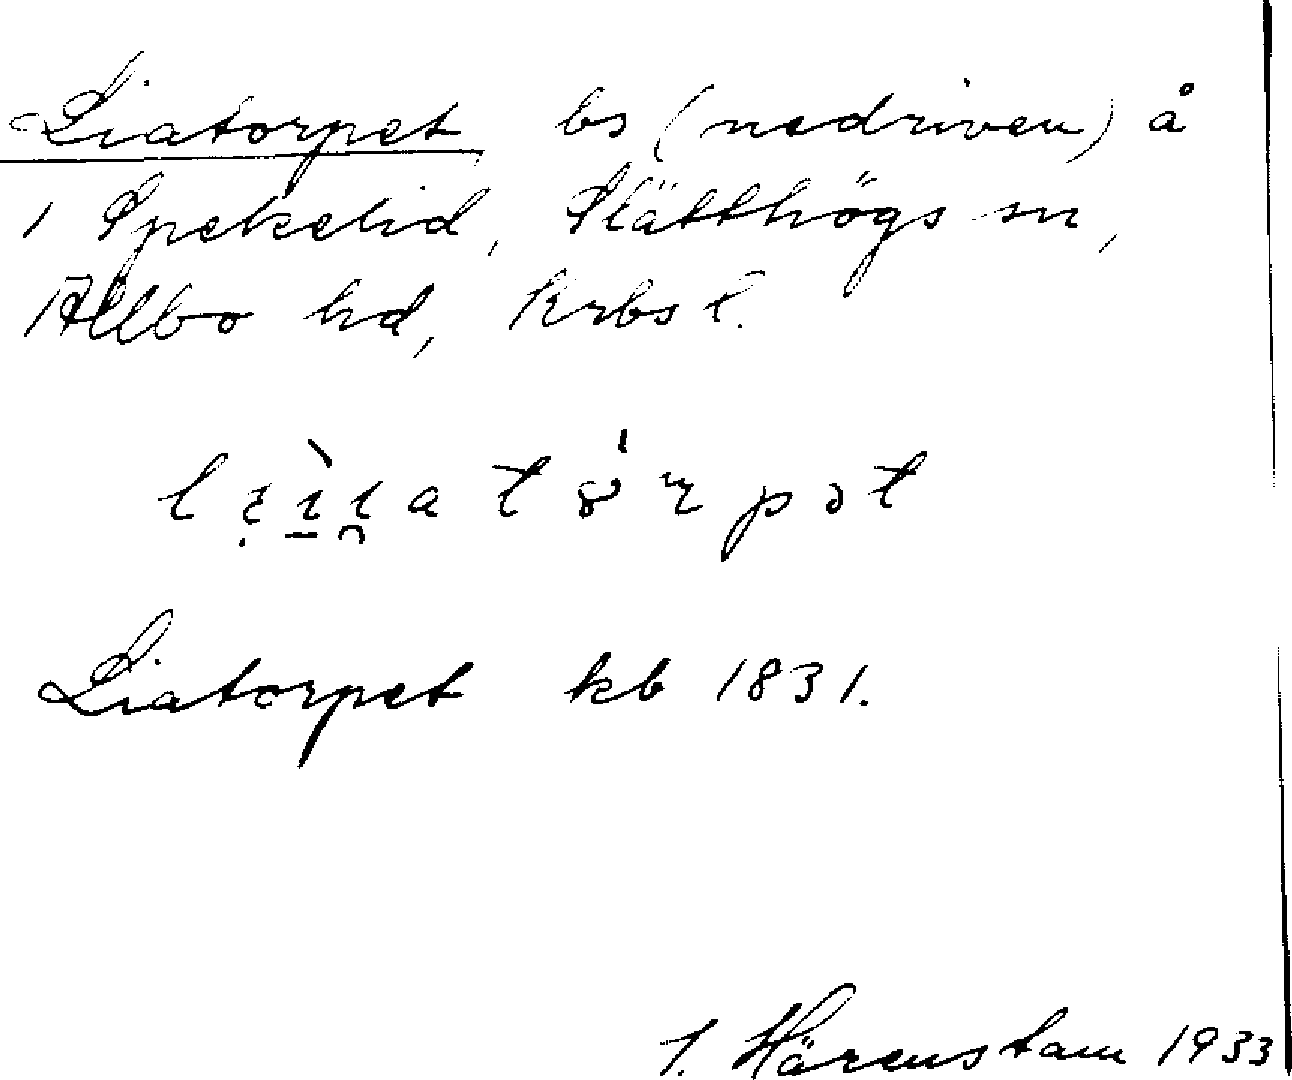 Liatorpet bs (nedriven) å
1 Spekelid, Slätthögs sn,
Allbo hd, Krbs l.
Liatorpet kb 1831.
Härenstam 1933